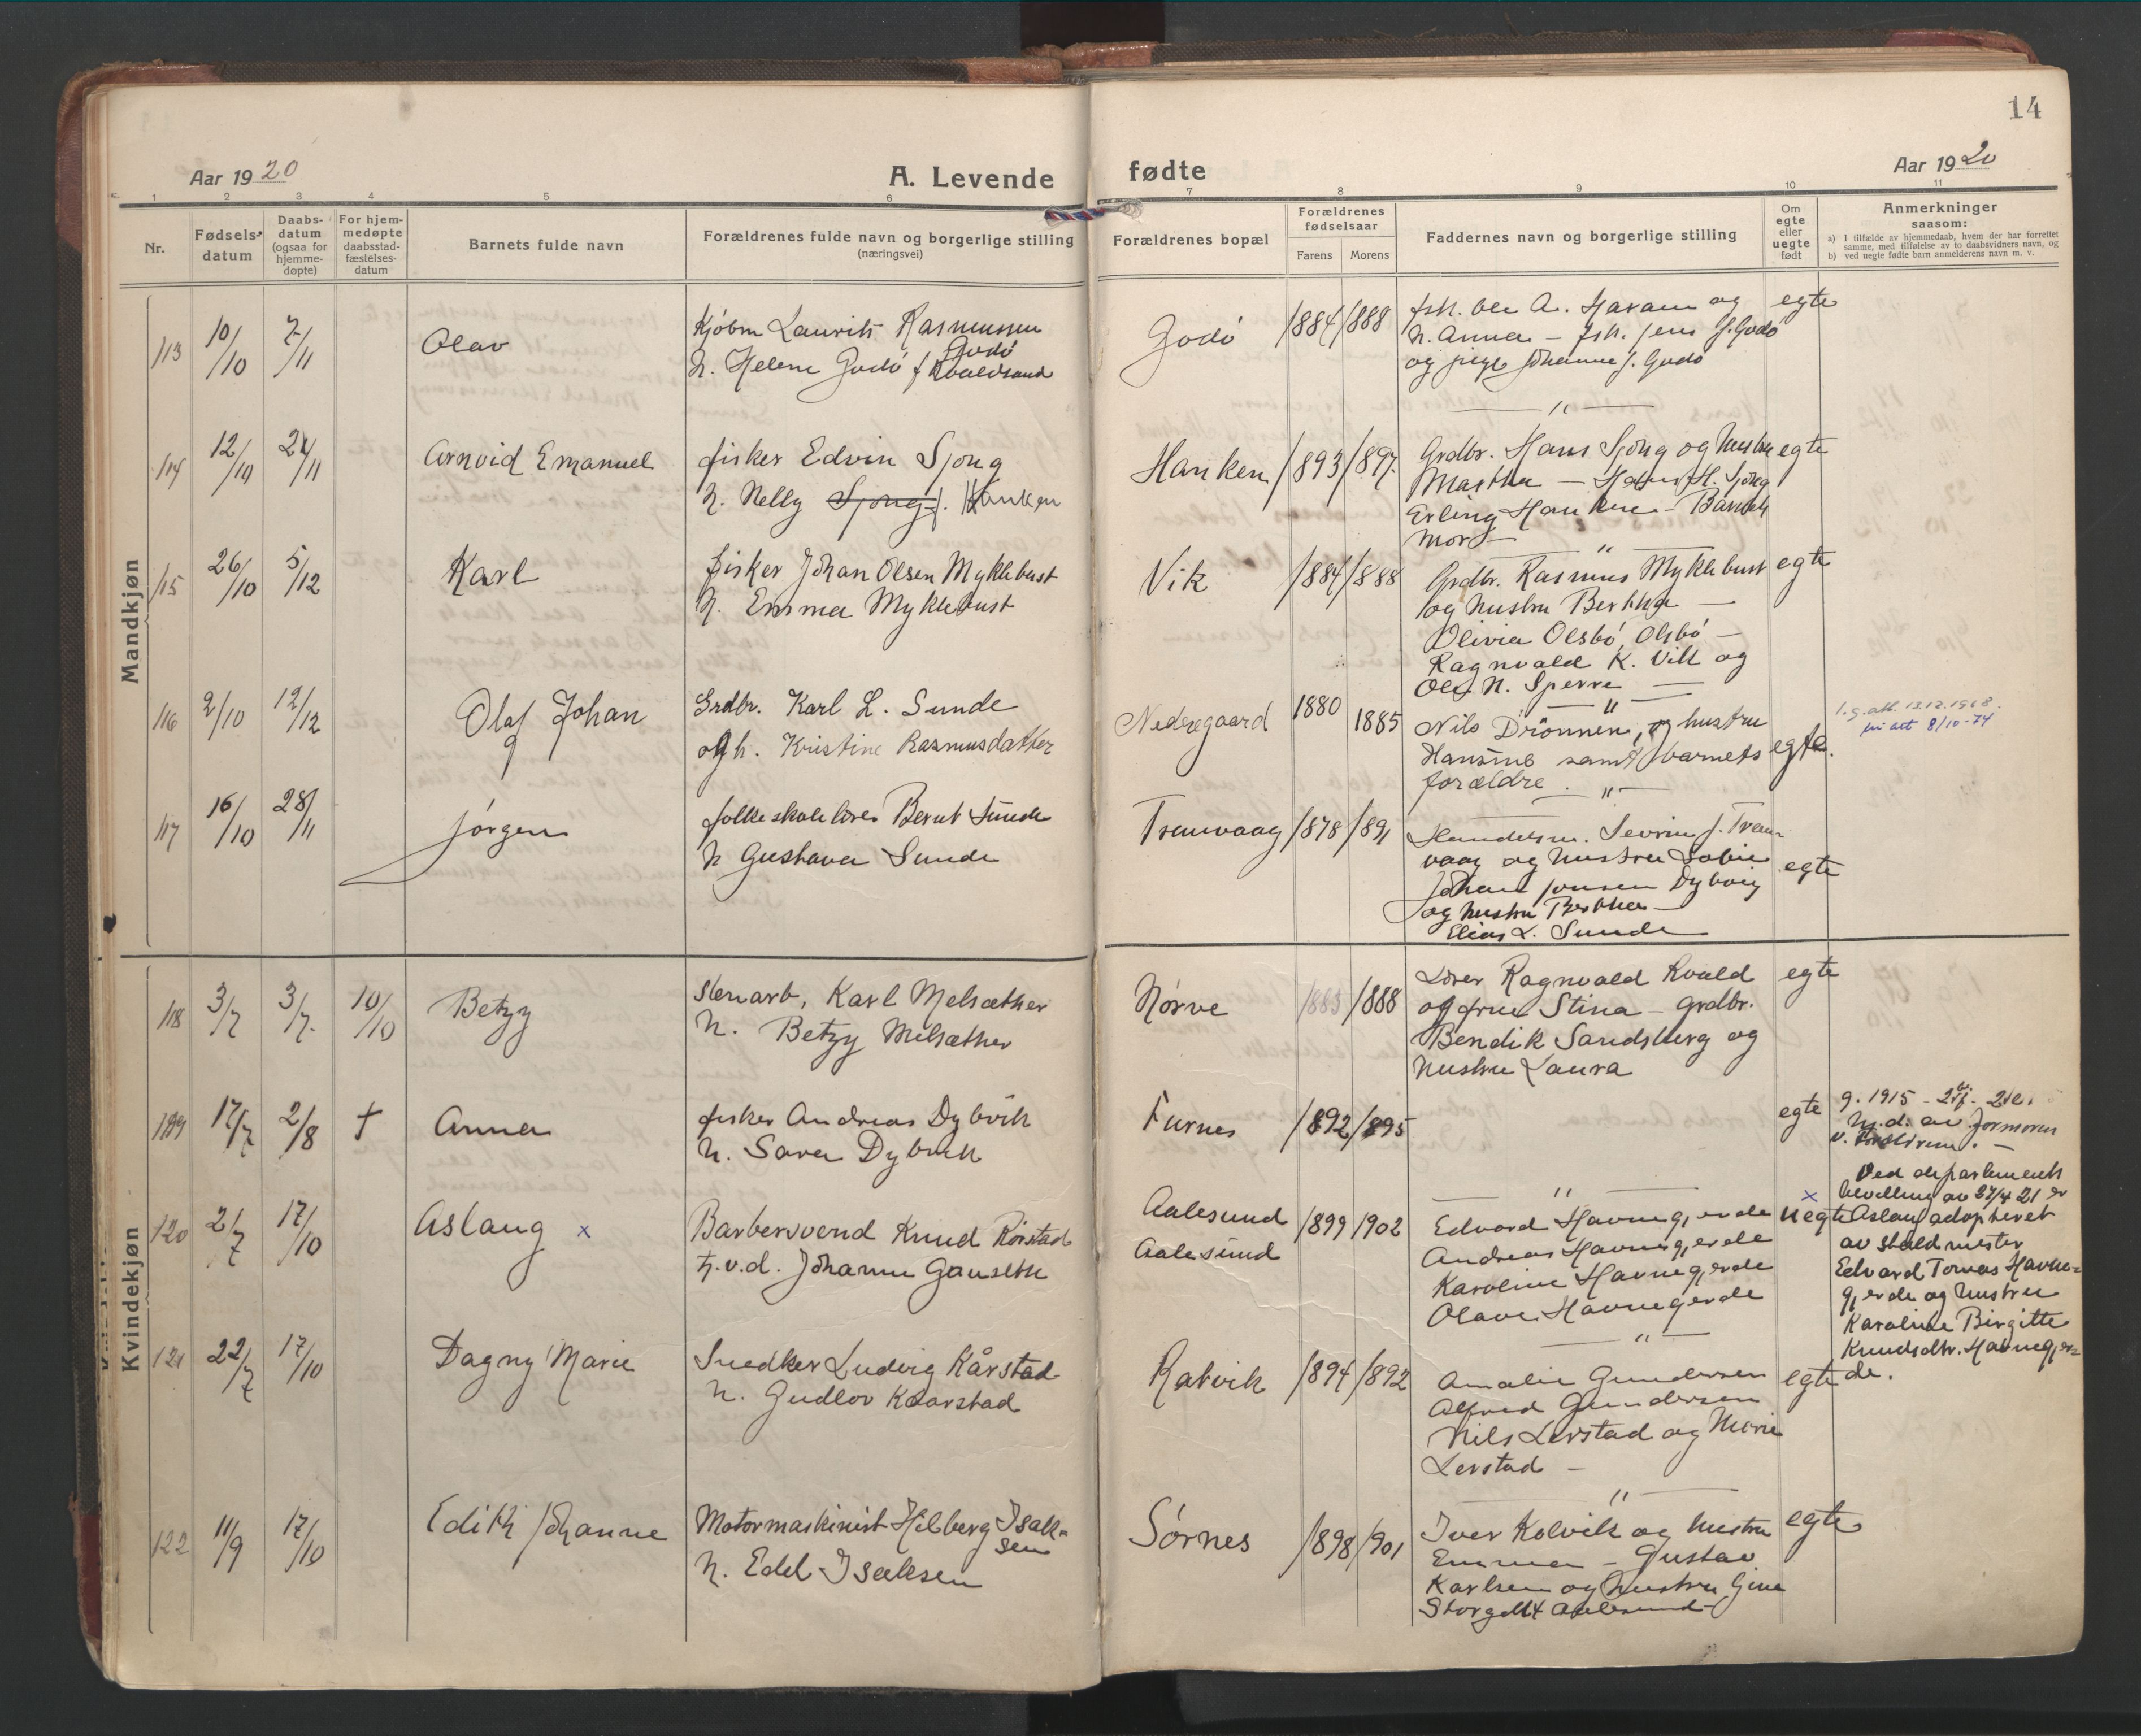 14
Aar 1920
A. Levende fødte
Aar 1920
1 2 3 4 5 6 7 8 9 10 11
Nr.
Fødsels-
datum
Daabs-
datum
(ogsaa for
hjemme-
døpte)
For hjem-
medøpte
daabsstad-
fæstelses-
datum
Barnets fulde navn
Forældrenes fulde navn og borgerlige stilling
(næringsvei)
Forældrenes bopæl
Forældrenes
fødselsaar
Farens Morens
Faddernes navn og borgerlige stilling
Om
egte
eller
uegte
født
Anmerkninger
saasom:
a) I tilfælde av hjemmedaab, hvem der har forrettet
samme, med tilføielse av to daabsvidners navn, og
b) ved uegte fødte barn anmelderens navn m. v.
Mandkjøn
113 10/10 7/11 Olav
Kjøbm Laurits Rasmussen
Godø
h. Helene Godø f Kvaldsund
Godø 1884 1888
fsk. Ole A. Haram og
h. Anna - fsk. Jens J. Godø
og pige Johanne J. Godø
egte
114 12/10 21/11 Arnvid Emanuel
fisker Edvin Sjong
h. Nelly Sjong f. Hanken
Hanken 1893 1897.
Grdbr. Hans Sjong og hustru
Martha - Hans H. Sjong
Erling Hanken - Barnets
mor -
egte
115 26/10 5/12 Karl
fisker Johan Olsen Myklebust
h. Emma Myklebust
Vik 1884 1888
Grdbr. Rasmus Myklebust
og hustru Bertha -
Olivia Olsbø, Olsbø -
Ragnvald K. Vik og
Ole N. Sperre -
egte
116 2/10 12/12 Olaf Johan
Grdbr. Karl L. Sunde
og h. Kristine Rasmusdatter
Nedregaard 1880 1885
Nils Drønnen, og hustru
Hansine samt barnets
forældre.
egte.
l.g.att. 12.12.1968.
8/10-74
117 16/10 28/11 Jørgen
folkeskolelærer Bernt Sunde
h Gustava Sunde
Tranvaag 1878 1891
Handelsm. Sevrin J. Tran-
vaag og hustru Sofie
Johan Jonsen Dybvig
og hustru Bertha -
Elias L. Sunde
egte
Kvindekjøn
118 3/7 3/7. 10/10 Betzy
Stenarb, Karl Melsæther
h. Betzy Melsæther
Nørve 1883 1888
Lærer Ragnvald Kvald
og frue Stina - grdbr.
Bendik Sandsberg og
hustru Laura
egte
119 17/7 2/8 † Anna
fisker Andreas Dybvik
h. Sara Dybvik
Furnes 1892 1895
egte
g. 1915 -
hj.d. av jormoren
120 2/7 17/10 Aslaug x
Barbersvend Knud Rørstad
t.v.d. Johanne Gauseth
Aalesund
Aalesund
1899 1902
Edvard Havnegjerde
Andreas Havnegjerde
Karoline Havnegjerde
Olave Havnegjerde
x
uegte
Ved departementets
bevilling av 27/4 21 er
Aslaug adopteret
av staldmester
Edvard Tomas Havne-
gjerde og hustru
Karoline Birgitte
Knudsdtr. Havnegjer-
de.
121 22/7 17/10 Dagny Marie
Snedker Ludvig Kårstad
h. Gudlov Kaarstad
Ratvik 1894 1892
Amalie Gundersen
Alfred Gundersen
Nils Lerstad og Marie
Lerstad -
egte
122 11/9 17/10 Edith Johanne
Motormaskinist Hilberg Isak-
sen
h. Edel Isaksen
Sørnes 1898 1901
Iver Kolvik og hustru
Emma - Gustav
Karlsen og hustru Gine
Storgt 14 Aalesund -
egte